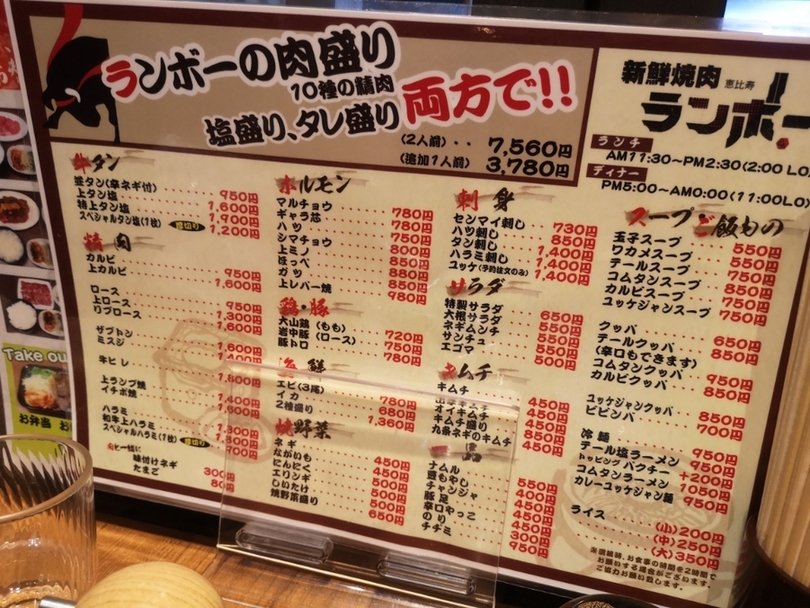 ランボーの肉盛り
10種の精肉
塩盛り、タレ盛り両方で!!
(2人前)‥ 7,560円
(追加1人前) 3,780円
新鮮焼肉 恵比寿
ランボー
ランチ
AM11:30~PM2:30(2:00 LO
ディナー
PM5:00~AM0:00(11:00LO)
牛タン
並タン(辛ネギ付) 950円
上タン塩 1,600円
特上タン塩 1,900円
スペシャルタン塩(1枚) 厚切り 1,200円
焼肉
カルビ 950円
上カルビ 1,600円
ロース 950円
上ロース 1,300円
リブロース 1,600円
ザブトン 1,600円
ミスジ
牛ヒレ
上ランプ焼
イチボ焼
ハラミ
和牛上ハラミ
スペシャルハラミ(1枚) 厚切り
肉と一緒に
味付けネギ 300円
たまご 80円
ホルモン
マルチョウ 780円
ギャラ芯 780円
ハツ 750円
シマチョウ 800円
上ミノ 850円
ほっぺ 880円
ガツ 850円
上レバー焼 980円
鶏・豚
大山鶏(もも) 720円
岩中豚(ロース) 750円
豚トロ 780円
海鮮
エビ(3尾) 780円
イカ 680円
2種盛り 1,360円
焼野菜
ネギ 450円
ながいも 450円
にんにく 500円
エリンギ 500円
しいたけ 500円
焼野菜盛り 650円
刺身
センマイ刺し 730円
ハツ刺し 850円
タン刺し 1,400円
ハラミ刺し 1,400円
ユッケ(予約注文のみ) 1,400円
サラダ
特製サラダ 650円
大根サラダ 550円
ネギムンチ 550円
サンチュ 500円
エゴマ 500円
キムチ
キムチ 450円
オイキムチ 450円
キムチ盛り 850円
九条ネギのキムチ 450円
ナムル 550円
豆もやし 400円
チャンジャ 450円
豚足 450円
辛口やっこ 450円
のり 300円
チヂミ 950円
スープご飯もの
玉子スープ 550円
ワカメスープ 550円
テールスープ 750円
コムタンスープ 850円
カルビスープ 750円
ユッケジャンスープ 750円
クッパ 650円
テールクッパ 850円
(辛口もできます)
コムタンクッパ 950円
カルビクッパ 850円
ユッケジャンクッパ 850円
ビビンバ 700円
冷麺 950円
テール塩ラーメン 950円
トッピング パクチー +200円
コムタンラーメン 7050円
カレーユッケジャン麺 950円
ライス (小)200円
(中)250円
(大)350円
お願いする場合がございます。
ご協力お願い致します。
Take ou
お弁当